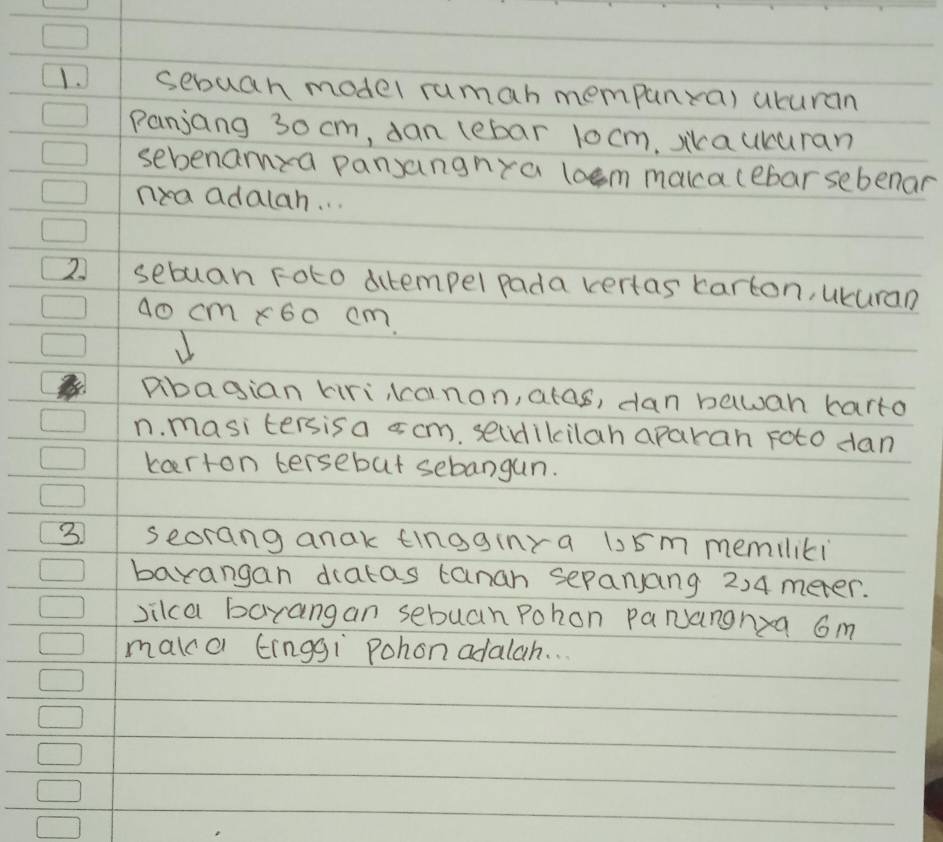 1. Sebuah model rumah mempunyai ukuran
Panjang 30 cm, dan lebar 10cm. Jika ukuran
sebenarnya panjangnya maka lebar sebenar
nya adalah...
2. sebuah Foto ditempel pada kertas karton, ukuran
40 cm x 60 cm.
↓
Dibagian kiri, kanan, atas, dan bawah karto
n. masi tersisa cm. selidikilah aparah Foto dan
karton tersebut sebangun.
3. seorang anak tingginya 1,5m memiliki
bayangan diatas tanah sepanjang 2,4 meter.
Jika bayangan sebuah Pohon panjangnya 6m
maka tinggi Pohon adalah...